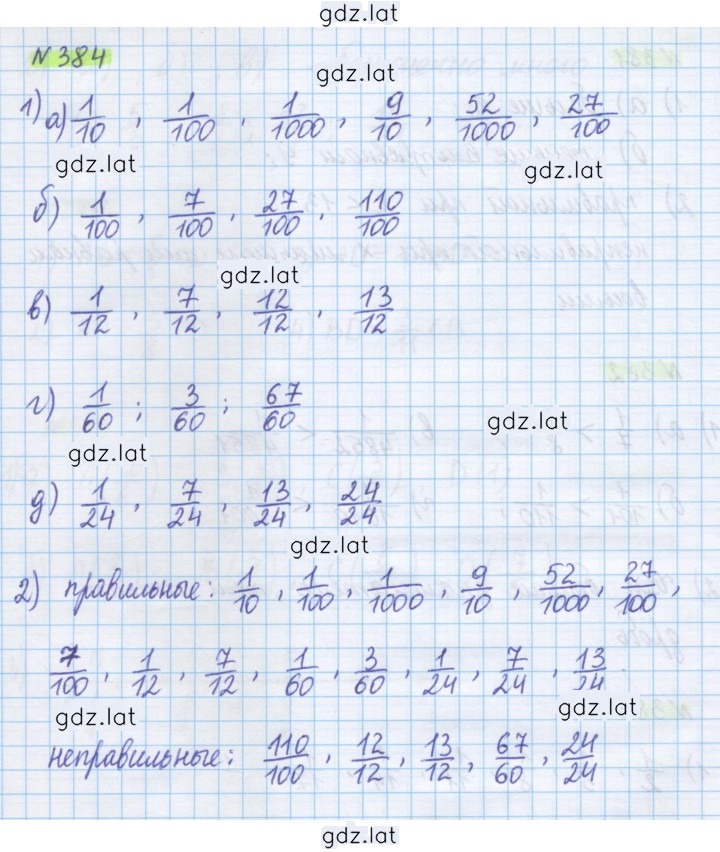 gdz.lat
N 384
gdz.lat
1) а) 1/10, 1/100, 1/1000, 9/10, 52/1000, 27/100
gdz.lat
gdz.lat
б) 1/100, 7/100, 27/100, 110/100
gdz.lat
в) 1/12, 7/12, 12/12, 13/12
г) 1/60; 3/60; 67/60
gdz.lat
gdz.lat
д) 1/24, 7/24, 13/24, 24/24
gdz.lat
2) правильные: 1/10, 1/100, 1/1000, 9/10, 52/1000, 27/100,
7/100, 1/12, 7/12, 1/60, 3/60, 1/24, 7/24, 13/24
gdz.lat
gdz.lat
неправильные: 110/100, 12/12, 13/12, 67/60, 24/24
gdz.lat